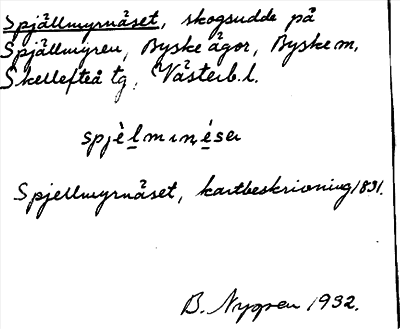 Spjällmyrnäset, skogsudde på
Spjällmyren, Byske ägor, Byske m,
Skellefteå tg, Västerb. l.
Spjellmyrnäset, kartbeskrivning 1891.
B. Nygren 1932.